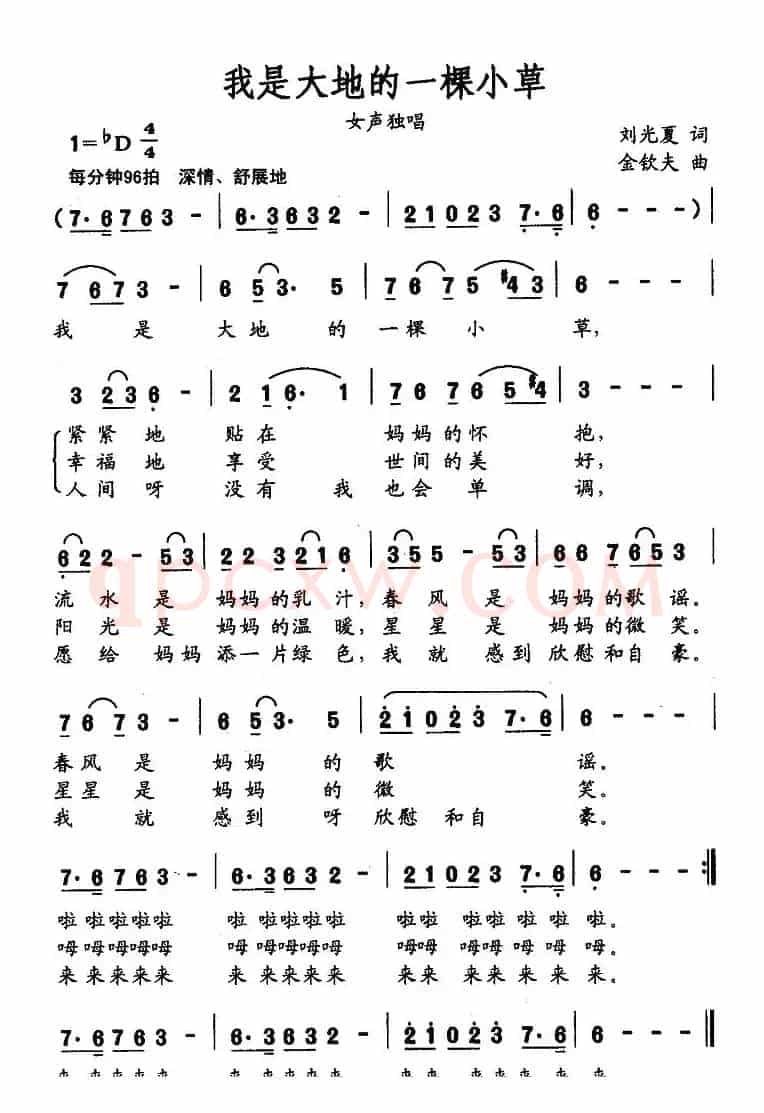 我是大地的一棵小草
女声独唱
1=♭D 4/4
刘光夏 词
每分钟96拍 深情、舒展地
金钦夫 曲
(7·6763 - | 6·3632 - | 21023 7·6 | 6 - - -)|
7 673 - | 6 53· 5 | 7675 #43 | 6 - - - |
我 是 大地 的 一棵 小 草,
3 236 - | 2 16· 1 | 76 765#4 | 3 - - - |
紧紧地 贴在 妈妈的怀 抱,
幸福地 享受 世间的美 好,
人间呀 没有 我 也会单 调,
622 - 53 | 22 3216 | 355 - 53 | 66 7653 |
流水是 妈妈的乳汁,春风是 妈妈的歌谣。
阳光是 妈妈的温暖,星星是 妈妈的微笑。
愿给妈妈添一片绿色,我就感到欣慰和自豪。
76 73 - | 6 53· 5 | 21023 7·6 | 6 - - - |
春风是 妈妈 的 歌 谣。
星星是 妈妈 的 微 笑。
我 就 感到 呀 欣慰 和自 豪。
7·6763 - | 6·3632 - | 21023 7·6 | 6 - - - :‖
啦 啦啦啦 啦 啦啦啦啦 啦啦 啦啦 啦啦 啦。
呣 呣呣呣 呣 呣呣呣呣 呣呣 呣呣 呣呣 呣。
来 来来来 来 来来来来 来来 来来 来来 来。
7·6763 - | 6·3632 - | 21023 7·6 | 6 - - - |
qpcxw.com